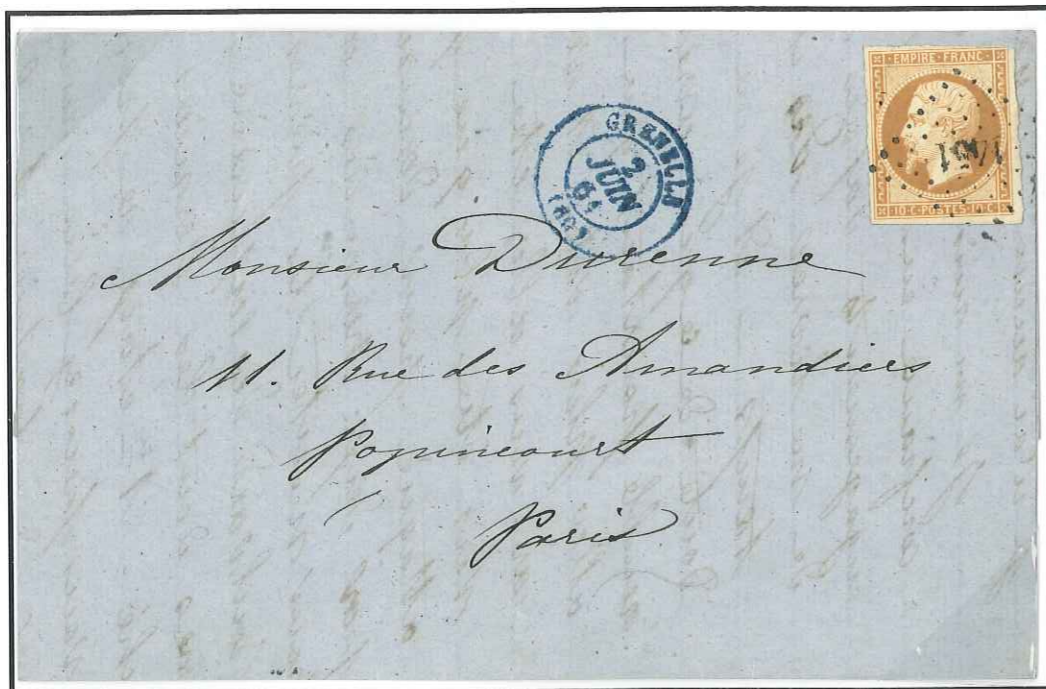 EMPIRE · FRANC ·
1451
10 · C · POSTES · 10 · C
GRENELLE
2
JUIN
61
(60)
Monsieur Durenne
11. Rue des Amandiers
Popincourt
Paris